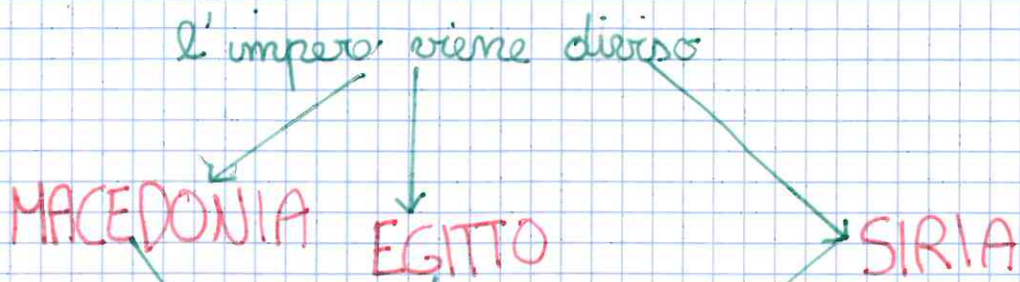 l'impero viene diviso
MACEDONIA EGITTO SIRIA